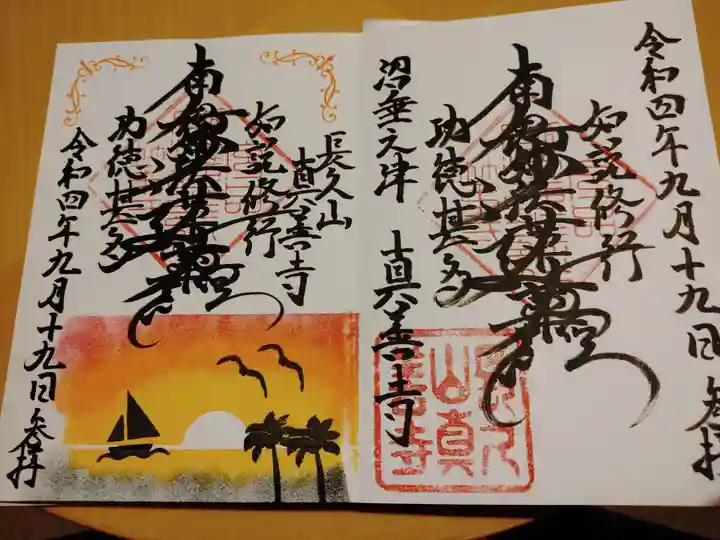 令和四年九月十九日 参拝
如説修行
南無妙法蓮華経
功徳甚多
沼垂之津 真善寺
長久
山真
善寺
長久山
真善寺
如説修行
南無妙法蓮華経
功徳甚多
令和四年九月十九日 参拝